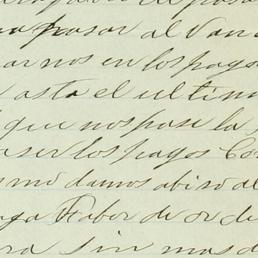 pasar al Van
arnos en los pag
asta el ultim
que nos pase la
aser los pagos Co
mo damos abiso al
ga Fabor de or de
ra Sin mas d